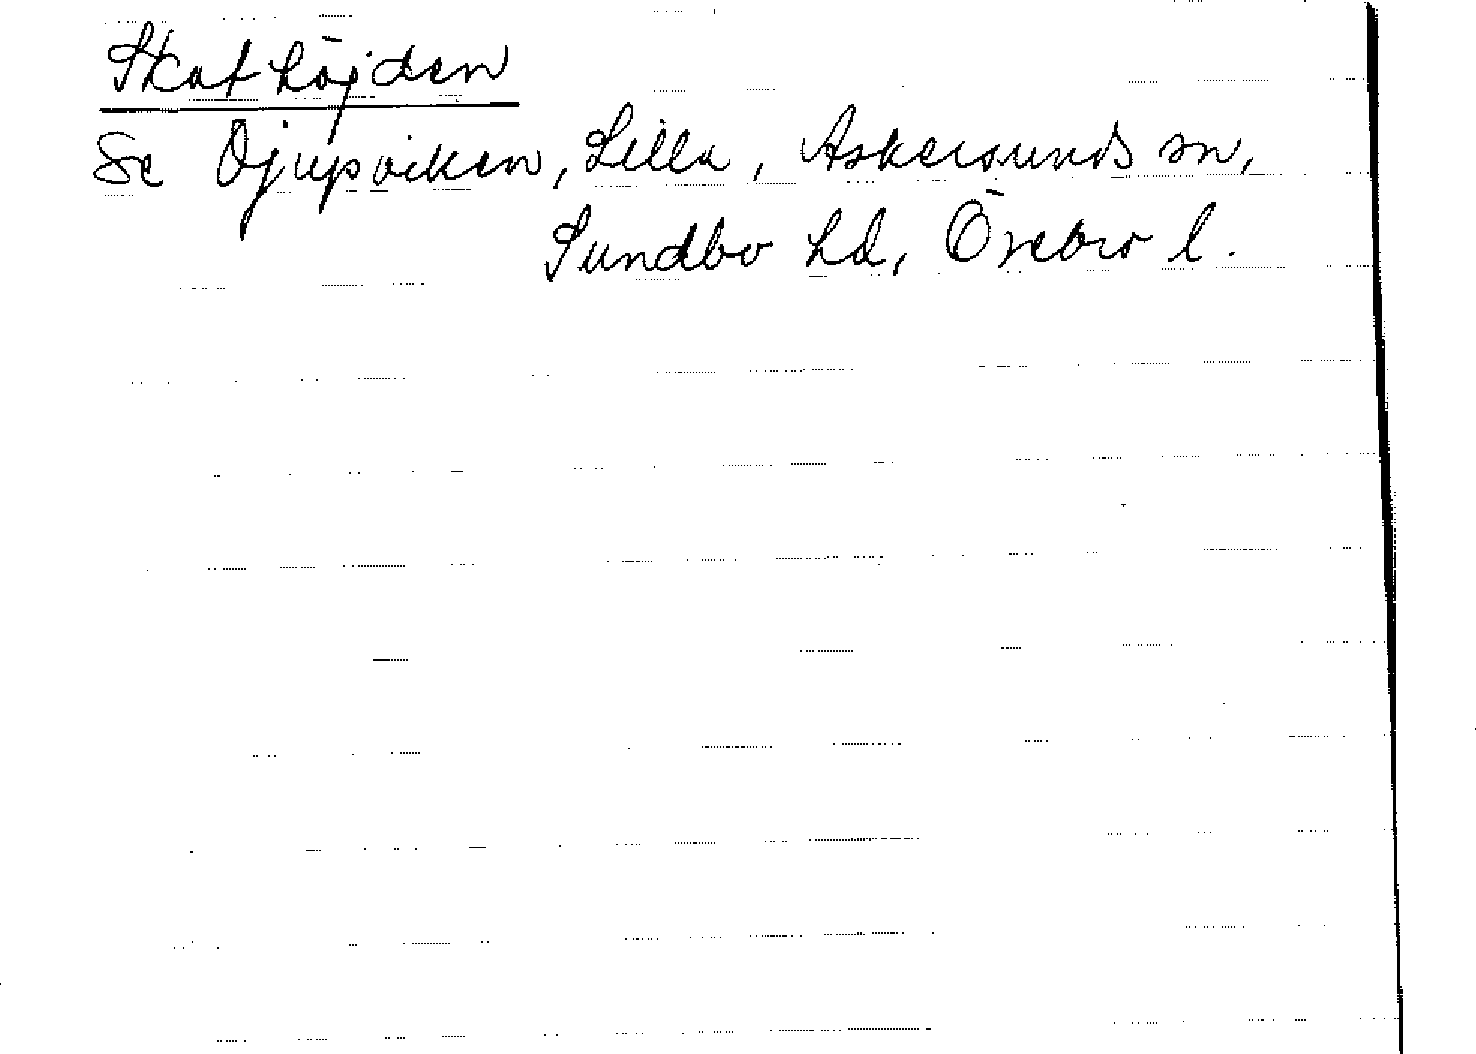 Skathöjden
Se Djupviken, Lilla, Askersunds sn,
Sundbo hd, Örebro l.